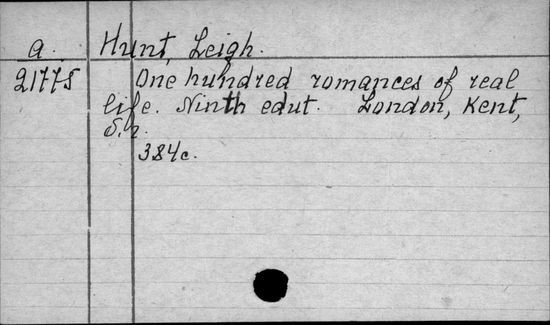 a. Hunt, Leigh.
21775 One hundred romances of real
life. Ninth edut. London, Kent,
S. r.
384c.